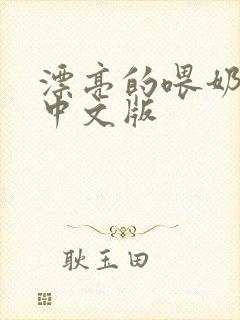 漂亮的喂奶
中文版
耿玉田